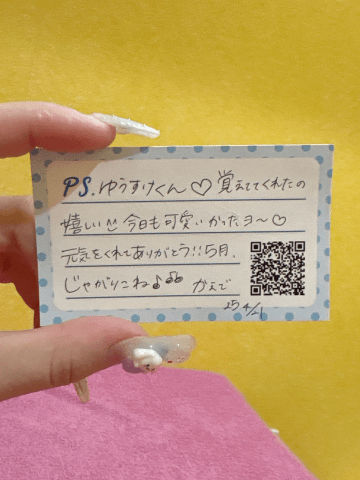 PS.ゆうすけくん♡覚えててくれたの
嬉しい 今日も可愛いかったヨ〜♡
元気をくれてありがとう!!5月、
じゃがりこね♪ かえで
25 4/21